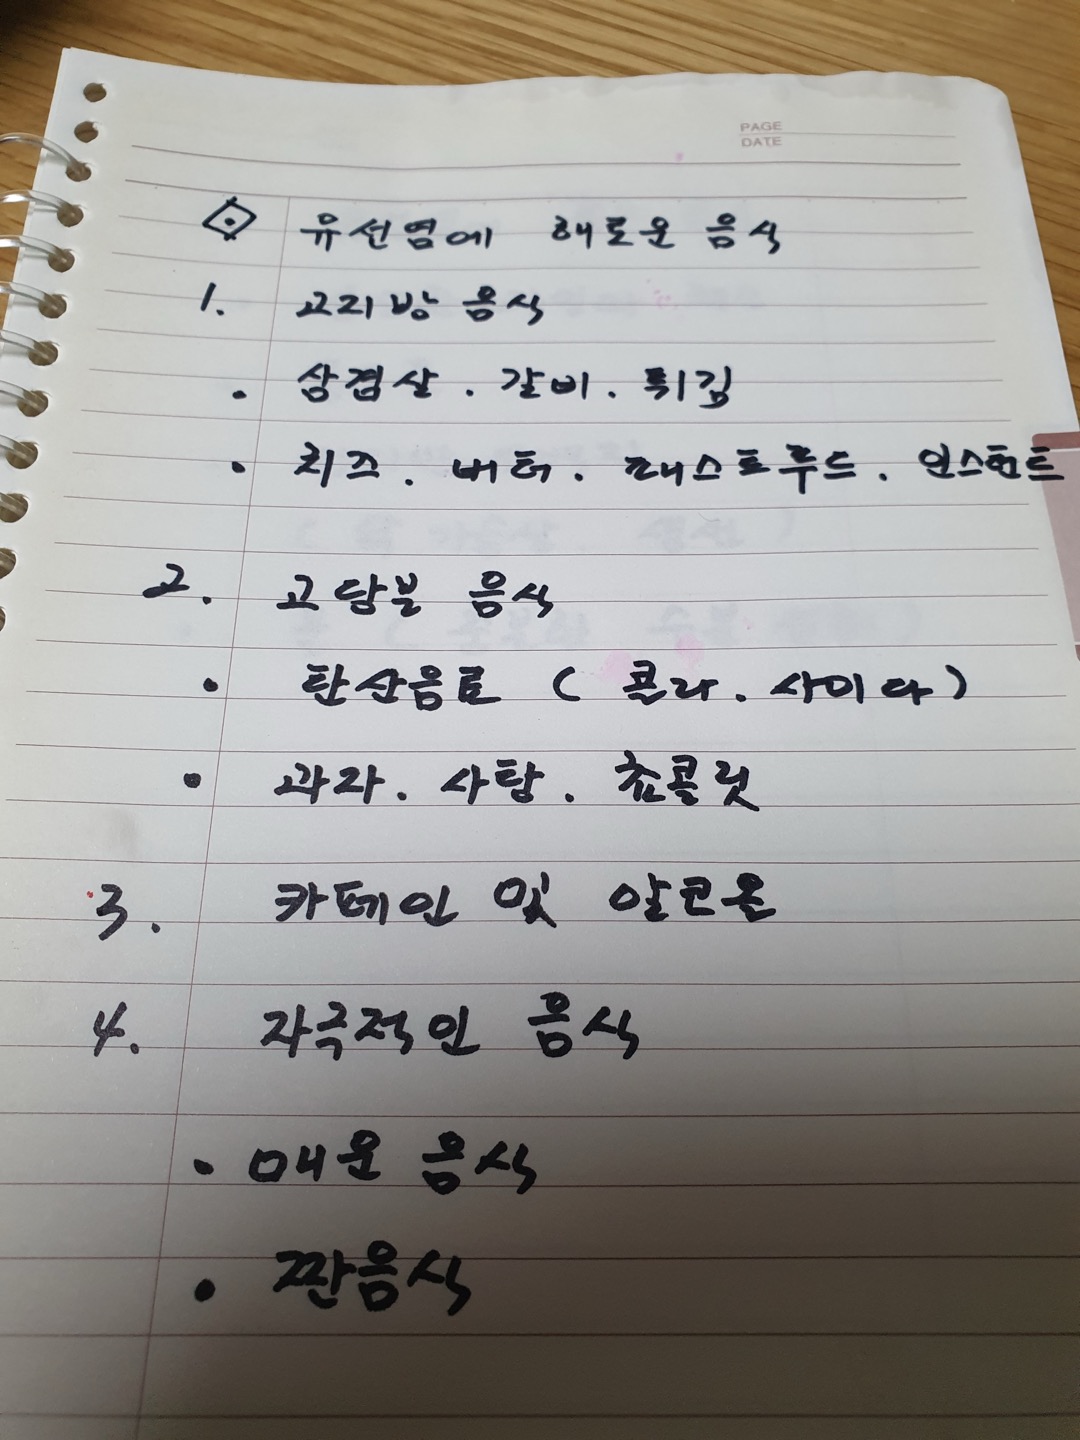 PAGE
DATE
유선염에 해로운 음식
1. 고지방 음식
· 삼겹살 . 갈비 . 튀김
· 치즈 . 버터 . 패스트푸드 . 인스턴트
2. 고당분 음식
· 탄산음료 ( 콜라 . 사이다 )
· 과자 . 사탕 . 쵸콜릿
3. 카페인 및 알코올
4. 자극적인 음식
· 매운 음식
· 짠음식